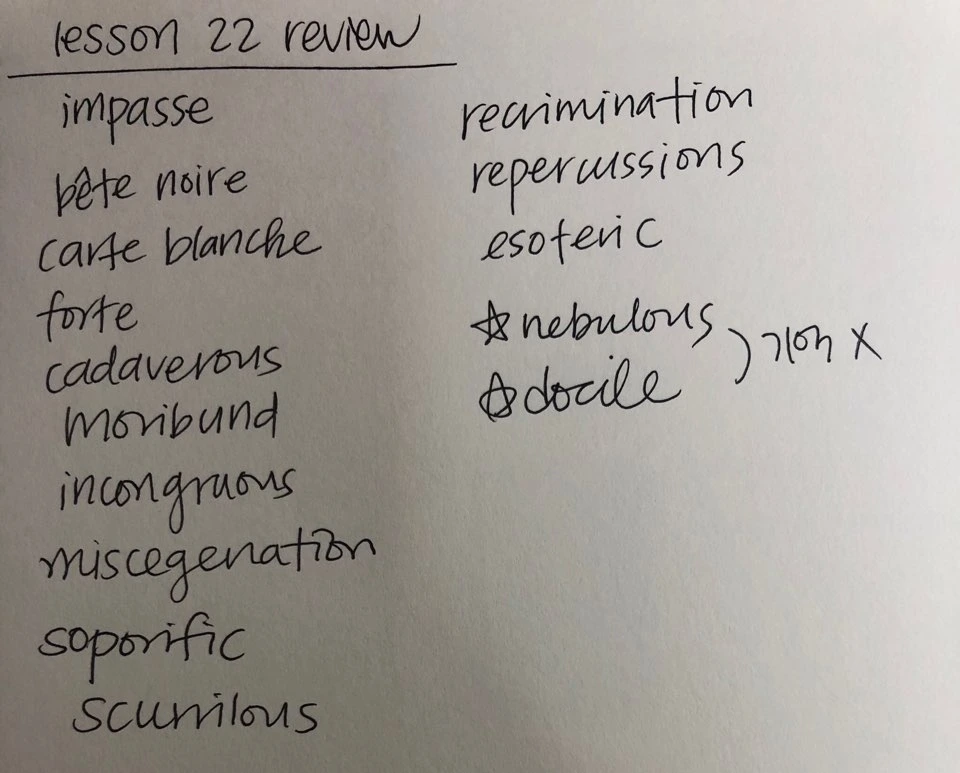 lesson 22 review
impasse
bête noire
carte blanche
forte
cadaverous
moribund
incongruous
miscegenation
soporific
scurrilous
recrimination
repercussions
esoteric
☆nebulous
☆docile
기억 X